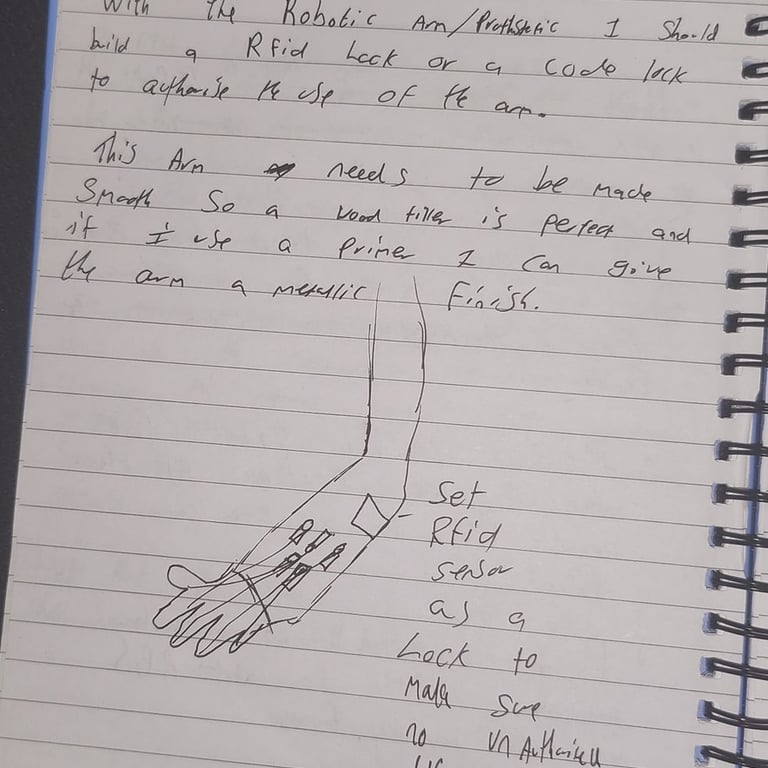 With the Robotic Arm/Prothstetic I Should
build a Rfid Lock or a code lock
to authorise the use of the arm.
This Arm needs to be made
Smooth So a wood filler is perfect and
if I use a primer I can give
the arm a metallic Finish.
Set
Rfid
sensor
as a
Lock to
Make Sure
no